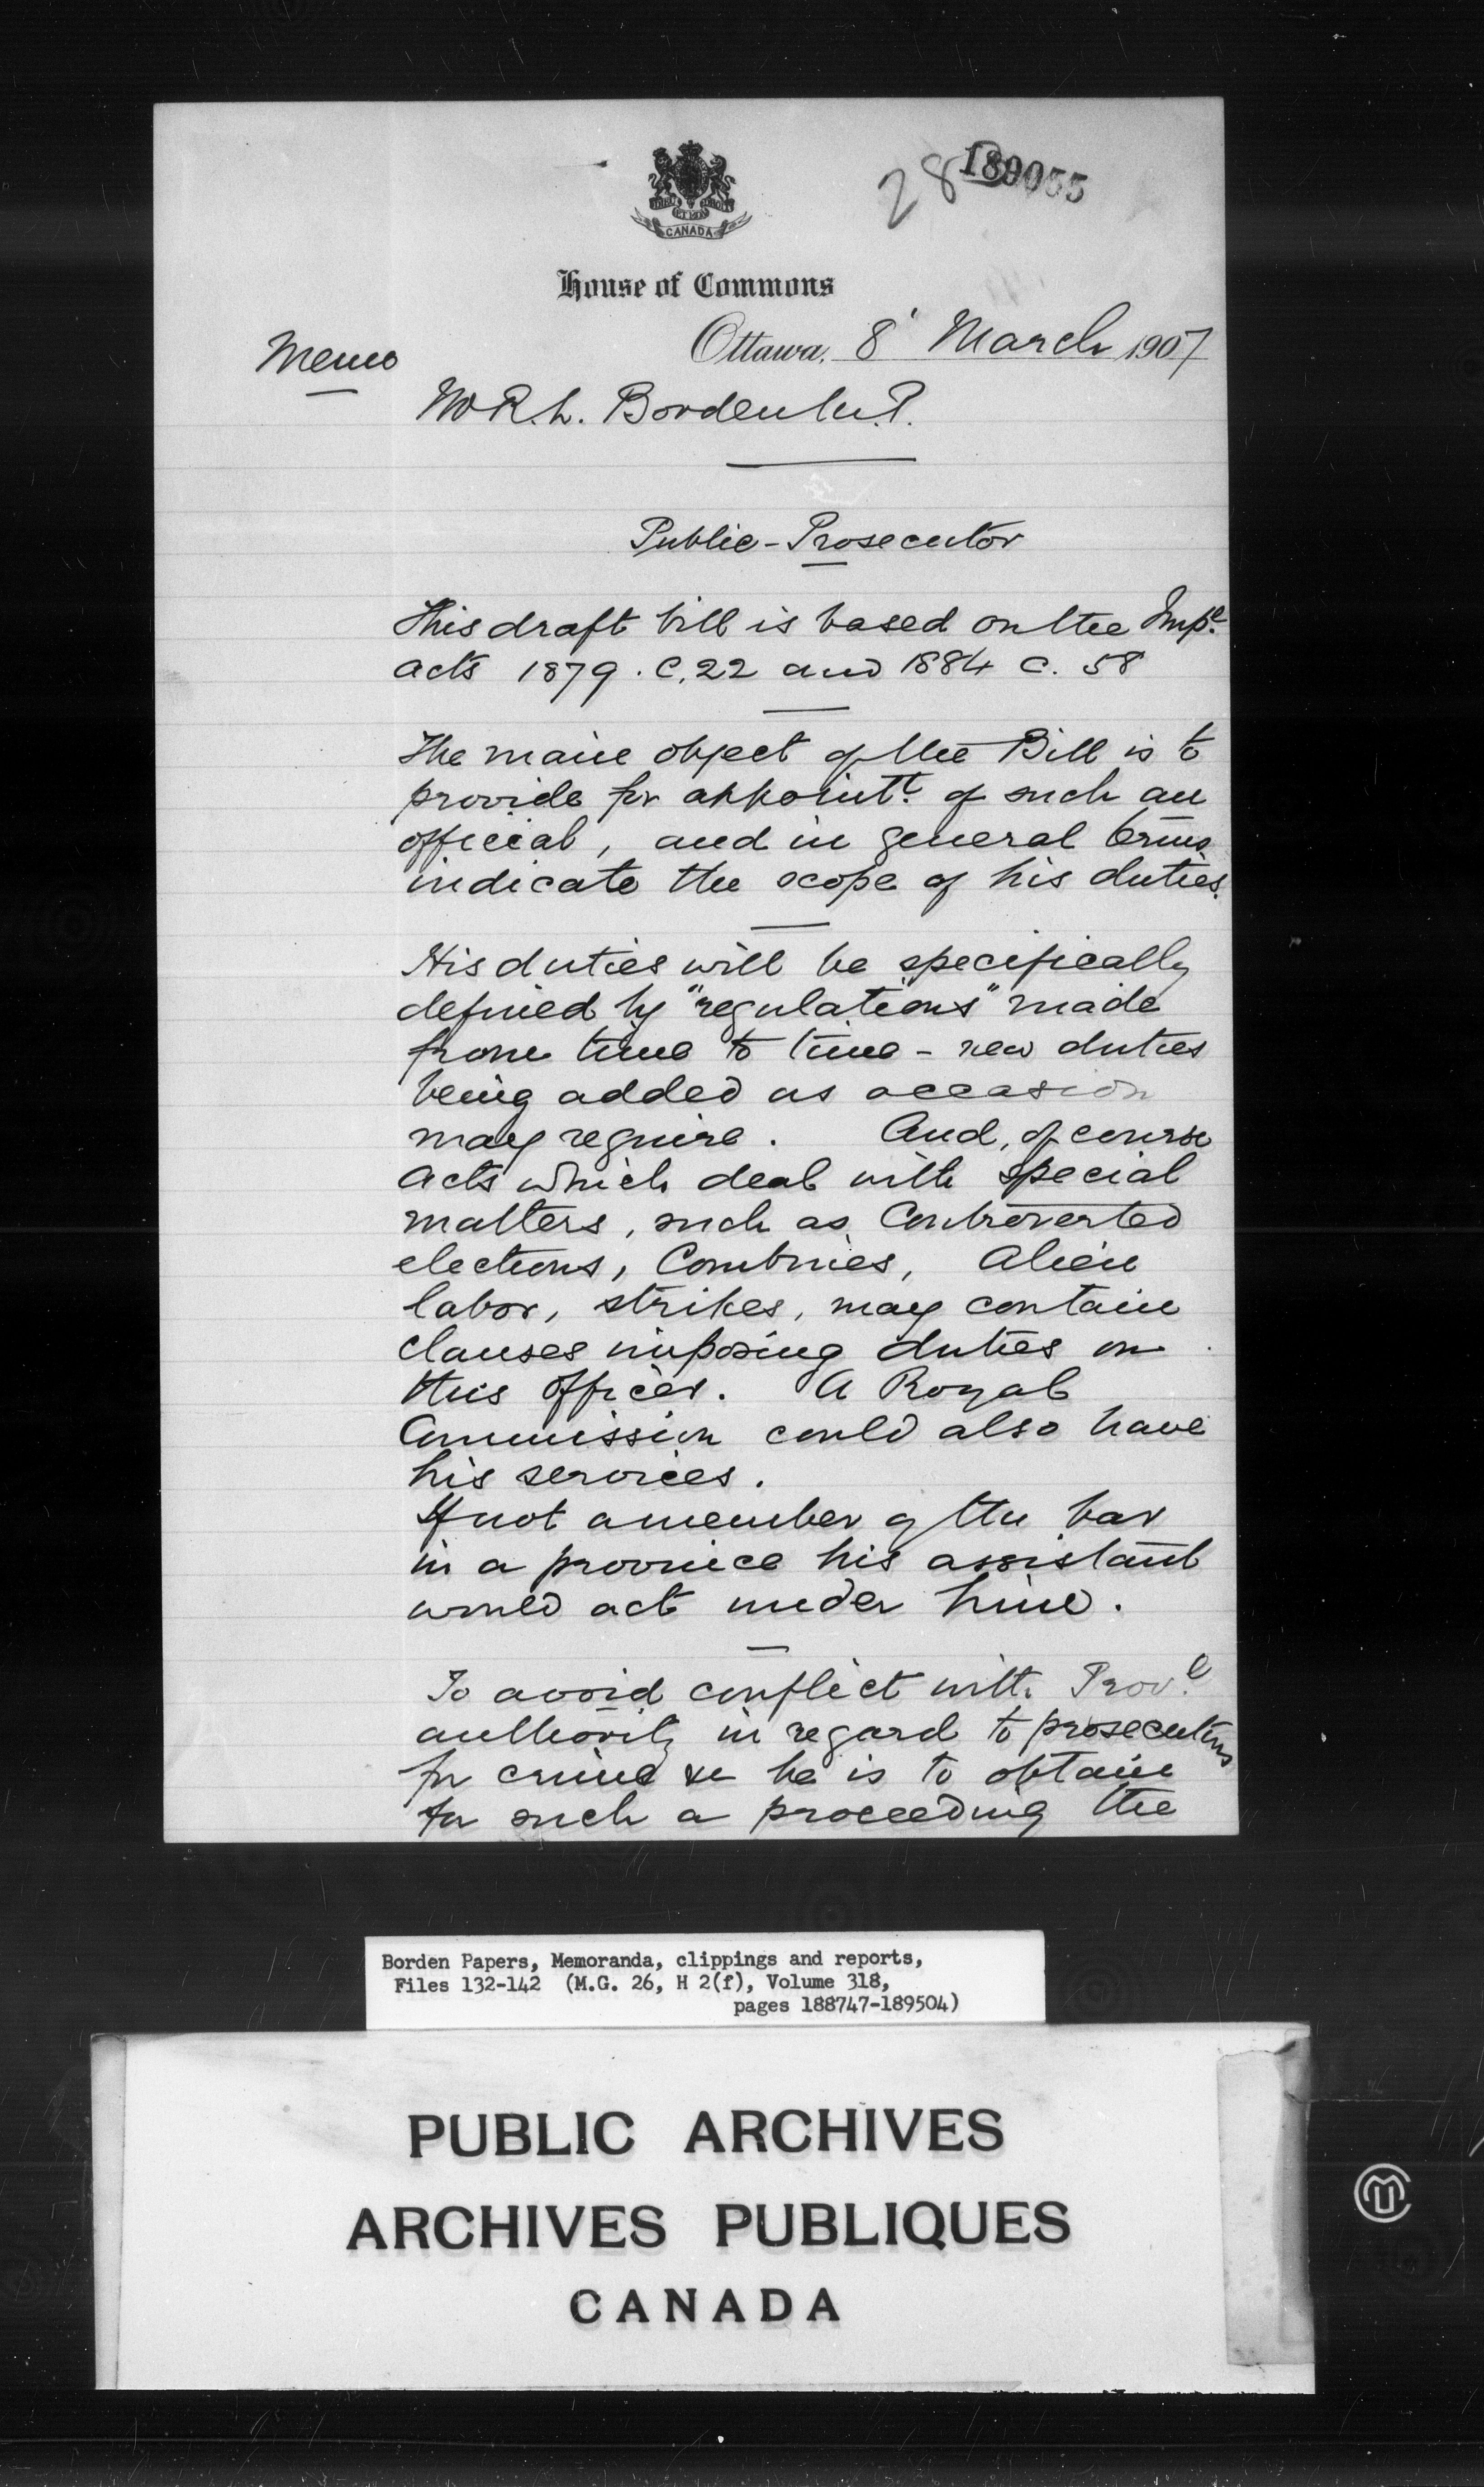 189055
28
DIEU ET MON DROIT
CANADA
House of Commons
Ottawa, 8' March 1907
Memo
Mr R. L. Borden M.P.
Public-Prosecutor
This draft bill is based on the Imp.l
acts 1879. C. 22 and 1884 c. 58
The main object of the Bill is to
provide for appoint.t of such an
official, and in general terms
indicate the scope of his duties.
His duties will be specifically
defined by "regulations" made
from time to time - new duties
being added as occasion
may require. And, of course
acts which deal with special
matters, such as Controverted
elections, Combines, Alien
labor, strikes, may contain
clauses imposing duties on
this officer. A Royal
Commission could also have
his services.
If not a member of the bar
in a province his assistant
would act under him.
To avoid conflict with Prov.l
authority in regard to prosecutions
for crime he is to obtain
for such a proceeding the
Borden Papers, Memoranda, clippings and reports,
Files 132-142 (M.G. 26, H 2(f), Volume 318,
pages 188747-189504)
PUBLIC ARCHIVES
ARCHIVES PUBLIQUES
CANADA